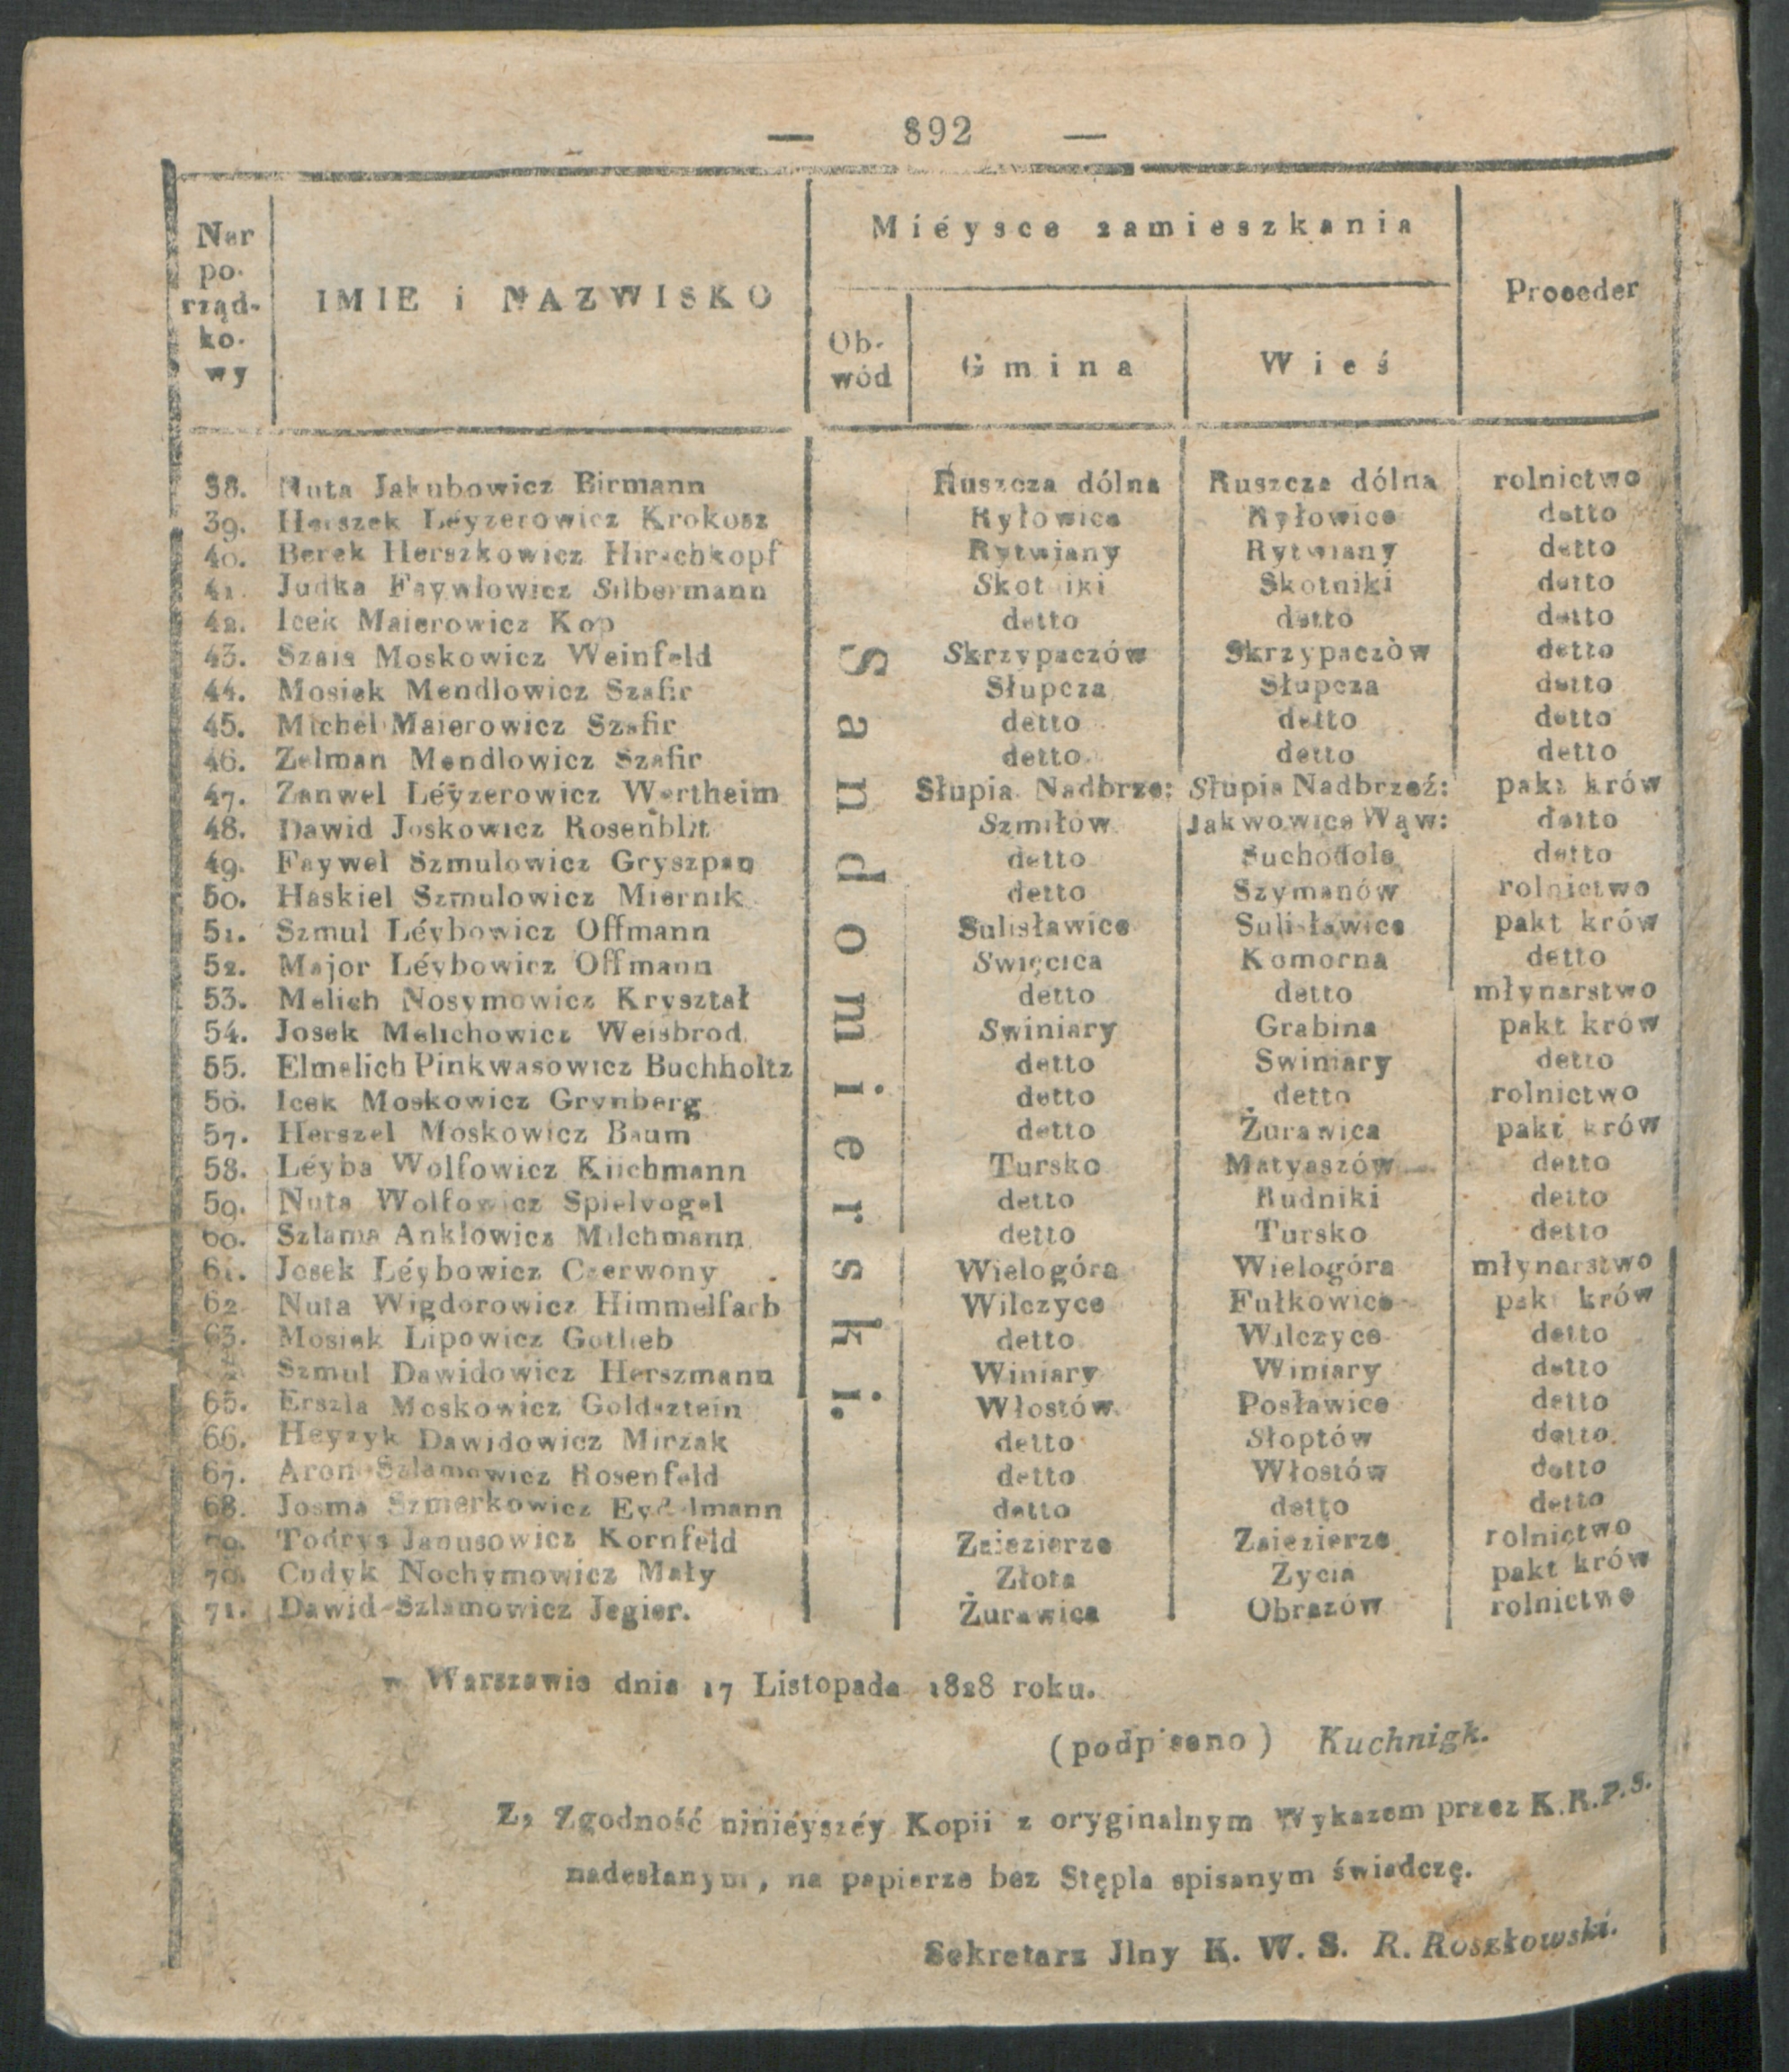 — 892 —
Ner po- rząd- ko- wy
IMIE i NAZWISKO
Miéysce zamieszkania
Proceder
Ob- wód
Gmina
Wieś
Sandomierski.
38. Nuta Jakubowicz Birmann Ruszcza dólna Ruszcza dólna rolnictwo
39. Herszek Léyzerowicz Krokosz Ryłowice Ryłowice detto
40. Berek Herszkowicz Hirschkopf Rytwiany Rytwiany detto
41. Judka Faywlowicz Silbermann Skotniki Skotniki detto
42. Icek Maierowicz Kop detto detto detto
43. Szaia Moskowicz Weinfeld Skrzypaczów Skrzypaczòw detto
44. Mosiek Mendlowicz Szafir Słupcza Słupcza detto
45. Michel Maierowicz Szafir detto detto detto
46. Zelman Mendlowicz Szafir detto detto detto
47. Zanwel Léyzerowicz Wertheim Słupia Nadbrze: Słupia Nadbrzeź: pakt krów
48. Dawid Joskowicz Rosenblit Szmiłów Jakwowice Wąw: detto
49. Faywel Szmulowicz Gryszpan detto Suchodole detto
50. Haskiel Szmulowicz Miernik detto Szymanów rolnictwo
51. Szmul Léybowicz Offmann Sulisławice Sulisławice pakt krów
52. Major Léybowicz Offmann Swięcica Komorna detto
53. Melich Nosymowicz Kryształ detto detto młynarstwo
54. Josek Melichowicz Weisbrod Swiniary Grabina pakt krów
55. Elmelich Pinkwasowicz Buchholtz detto Swiniary detto
56. Icek Moskowicz Grynberg detto detto rolnictwo
57. Herszel Moskowicz Baum detto Żurawica pakt krów
58. Léyba Wolfowicz Kiichmann Tursko Matyaszów detto
59. Nuta Wolfowicz Spielvogel detto Rudniki detto
60. Szlama Anklowicz Milchmann detto Tursko detto
61. Josek Léybowicz Czerwony Wielogóra Wielogóra młynarstwo
62 Nuta Wigdorowicz Himmelfarb Wilczyce Fułkowice pakt krów
63. Mosiek Lipowicz Gotlieb detto Wilczyce detto
Szmul Dawidowicz Herszmann Winiary Winiary detto
65. Erszla Moskowicz Goldsztein Włostów Posławice detto
66. Heyzyk Dawidowicz Mirzak detto Słoptów detto
67. Aron Szlamowicz Rosenfeld detto Włostów detto
68. Josma Szmerkowicz Eydelmann detto detto detto
Todrys Janusowicz Kornfeld Zaiezierze Zaiezierze rolnictwo
70. Cudyk Nochymowicz Mały Złota Zycia pakt krów
71. Dawid Szlamowicz Jegier. Żurawica Obrazów rolnictwo
w Warszawie dnia 17 Listopada 1828 roku.
(podpisano) Kuchnigk.
Za Zgodność niniéyszéy Kopii z oryginalnym Wykazem przez K.R.P.S.
nadesłanym, na papierze bez Stępla spisanym świadczę.
Sekretarz Jlny K. W. S. R. Roszkowski.